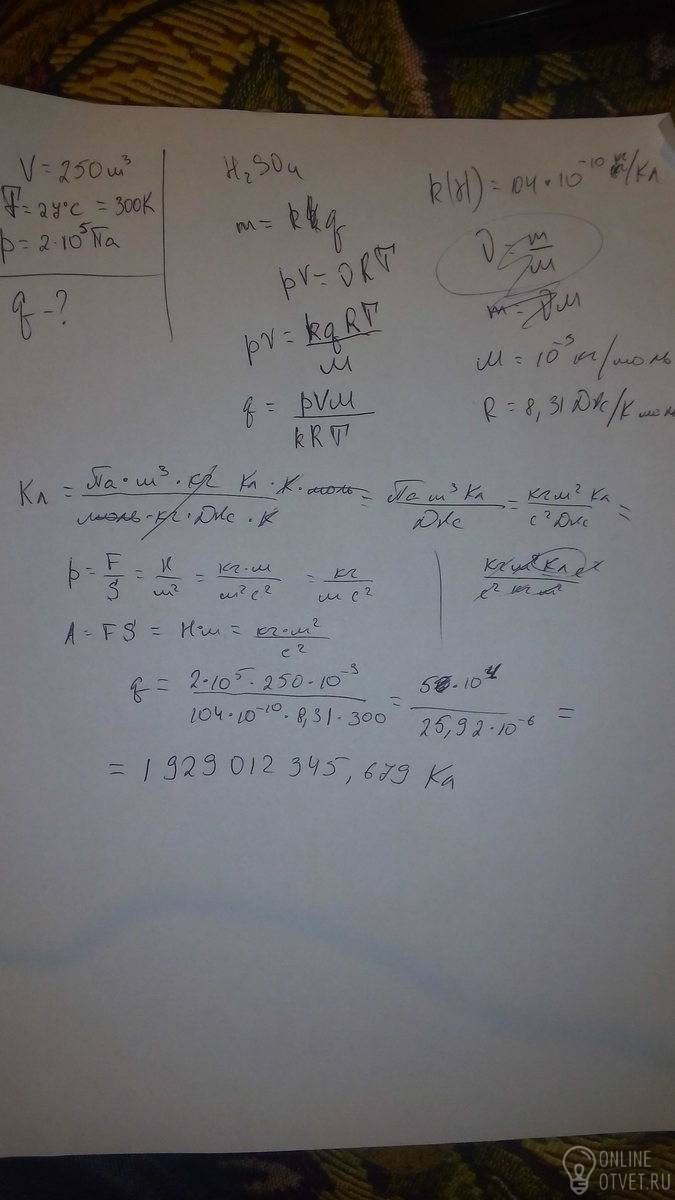 V = 250 м³
T = 27°C = 300K
p = 2·10⁵ Па
q - ?
H₂SO₄
m = kq
pV = νRT
pV = kqRT / M
q = pVM / kRT
k(H) = 104·10⁻¹⁰ кг/Кл
ν = m / M
m = νM
M = 10⁻³ кг/моль
R = 8,31 Дж/К моль
Кл = Па·м³·кг Кл·К·моль / моль·кг·Дж·К = Па м³ Кл / Дж = кг м² Кл / с² Дж =
p = F / S = Н / м² = кг·м / м² с² = кг / м с²
кг м² Кл с² / с² кг м²
A = FS = Н·м = кг·м² / с²
q = 2·10⁵·250·10⁻³ / 104·10⁻¹⁰·8,31·300 = 5·10⁴ / 25,92·10⁻⁶ =
= 1 929 012 345,679 Кл
ONLINE
OTVET.RU